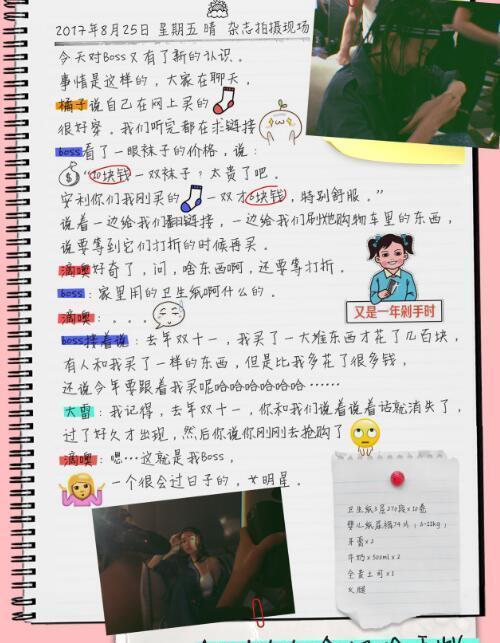 2017年8月25日 星期五 晴 杂志拍摄现场
今天对Boss又有了新的认识。
事情是这样的，大家在聊天，
橘子说自己在网上买的
很好穿。我们听完都在求链接
boss看了一眼袜子的价格，说：
“10块钱一双袜子？太贵了吧。
安利你们我刚买的 一双才6块钱，特别舒服。”
说着一边给我们翻链接，一边给我们刷她购物车里的东西，
说要等到它们打折的时候再买。
滴噢好奇了，问，啥东西啊，还要等打折。
boss：家里用的卫生纸啊什么的。
又是一年剁手时
滴噢：。。。。
boss接着说：去年双十一，我买了一大堆东西才花了几百块，
有人和我买了一样的东西，但是比我多花了很多钱，
还说今年要跟着我买呢哈哈哈哈哈哈……
大雷：我记得，去年双十一，你和我们说着说着话就消失了，
过了好久才出现，然后你说你刚刚去抢购了
滴噢：嗯…这就是我Boss，
一个很会过日子的，女明星。
卫生纸3层270段×10卷
婴儿纸尿裤74片（6-11kg）
牙膏×2
牛奶×500ml×2
全麦土司×1
火腿